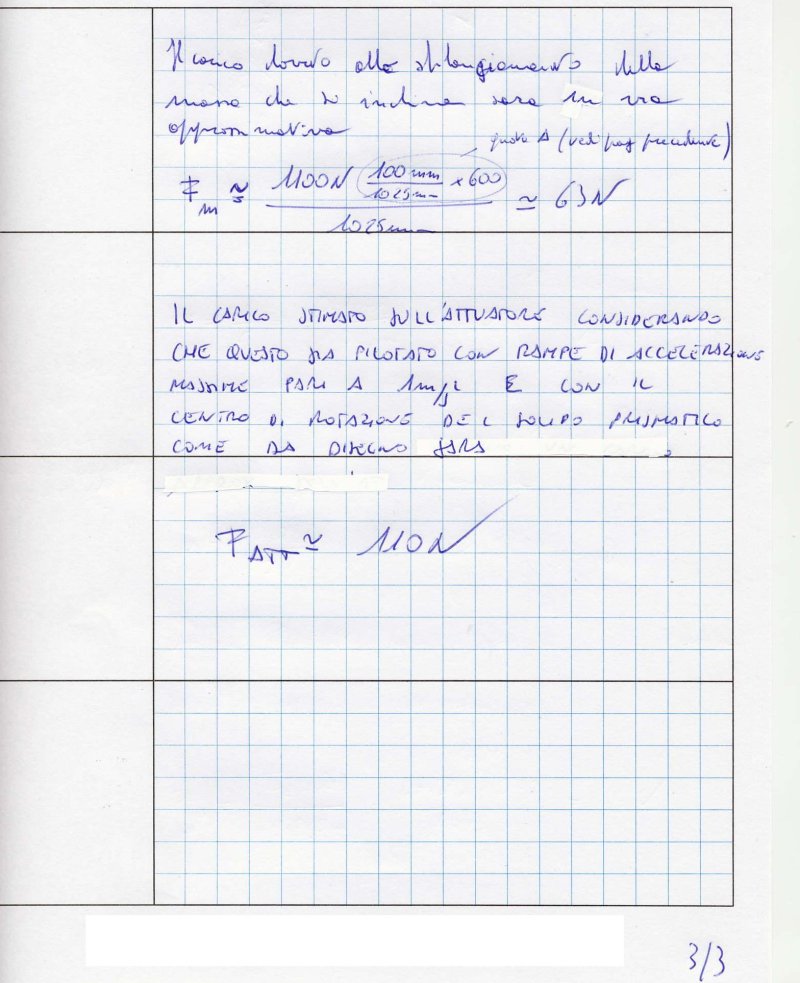 Il carico dovuto allo sbilanciamento della
massa che si inclina sarà in via
approssimativa
quota A (vedi pag precedente)
Fm ≃ 1100N (100mm/1025mm × 600) / 1025mm ≃ 63N
IL CARICO STIMATO SULL'ATTUATORE CONSIDERANDO
CHE QUESTO SIA PILOTATO CON RAMPE DI ACCELERAZIONE
MASSIME PARI A 1m/s² E CON IL
CENTRO DI ROTAZIONE DEL SOLIDO PRISMATICO
COME DA DISEGNO SARÀ
FATT ≃ 110N
3/3